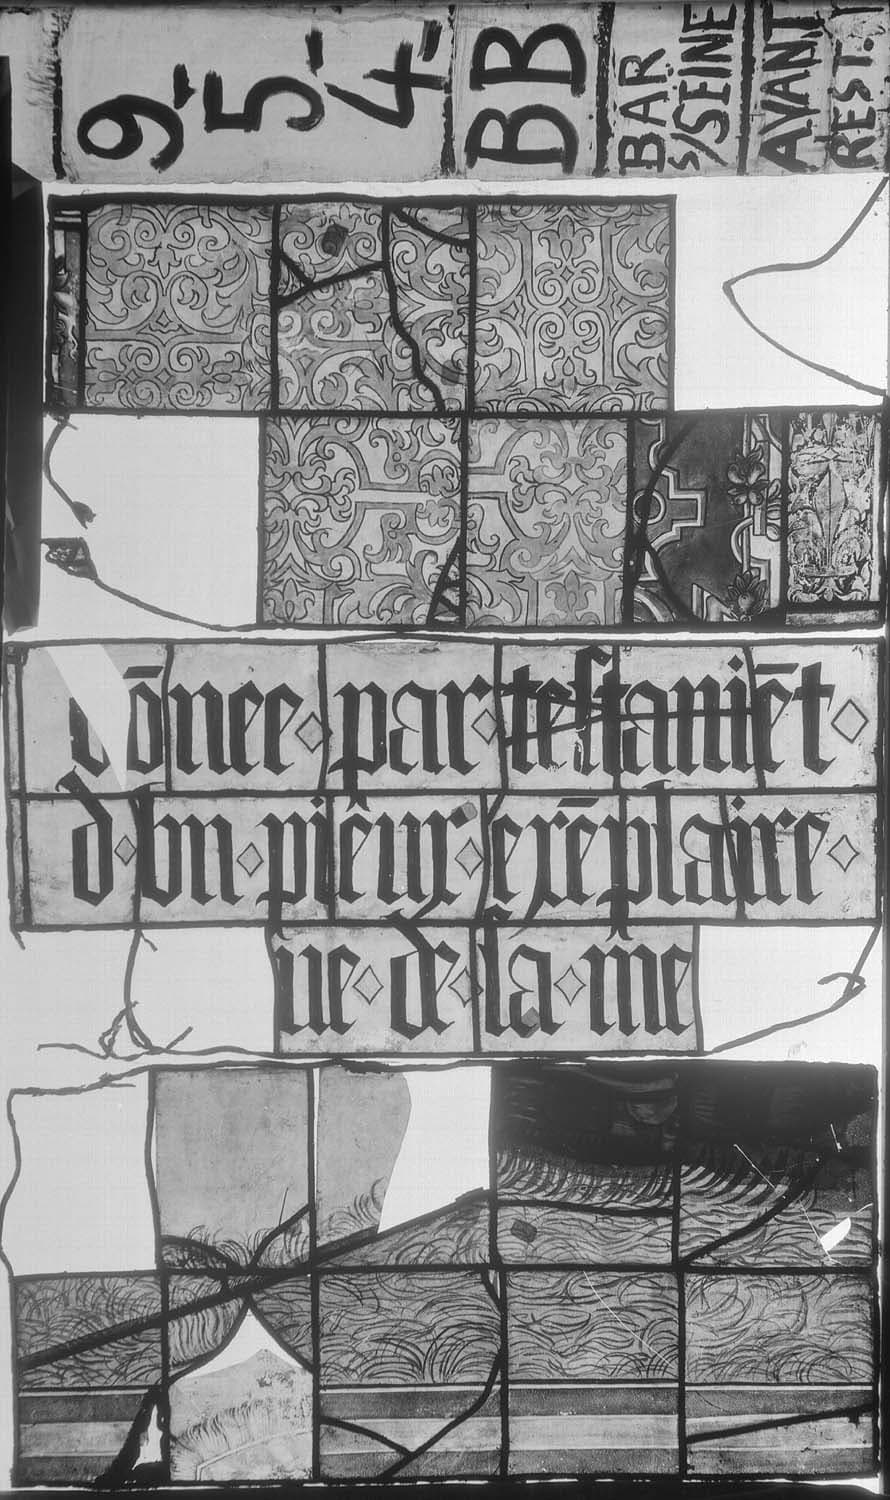 9-5-4- BB BAR S/SEINE AVANT REST.
dōnee par testamēt
d un pieux exēplaire
ue de la me